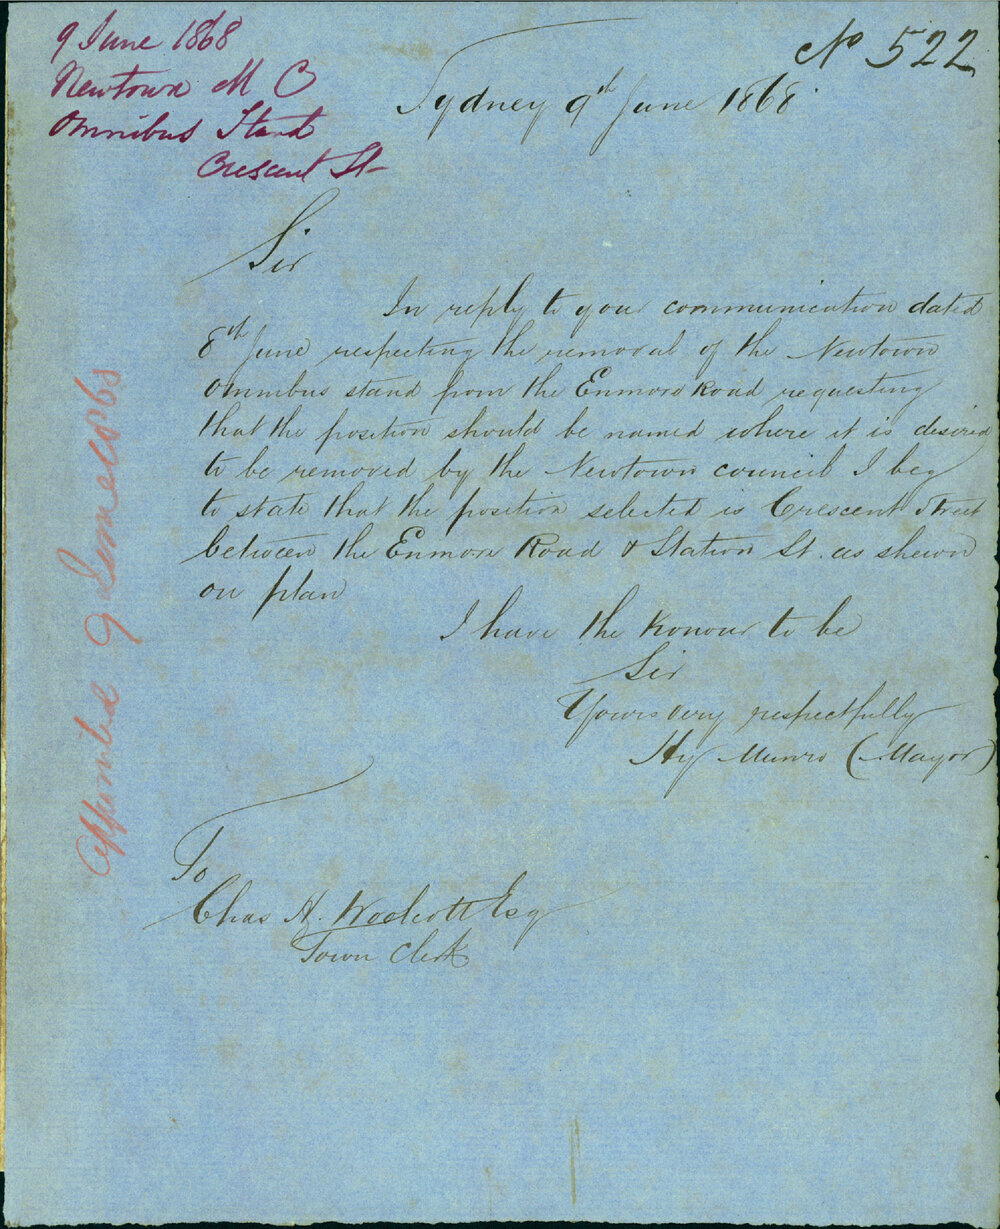 9 June 1868
Newtown M C
Omnibus Stand
Crescent St
No 522
Sydney 9th June 1868.
Sir
In reply to your communication dated
8th June respecting the removal of the Newtown
Omnibus stand from the Enmore Road requesting
that the position should be named where it is desired
to be removed by the Newtown council I beg
to state that the position selected is Crescent Street
between the Enmore Road & Station St. as shewn
on plan
I have the honour to be
Sir
Yours very respectfully
Hy Munro (Mayor)
To
Chas H. Woolcott Esq
Town Clerk
Appointed 9 June 1868